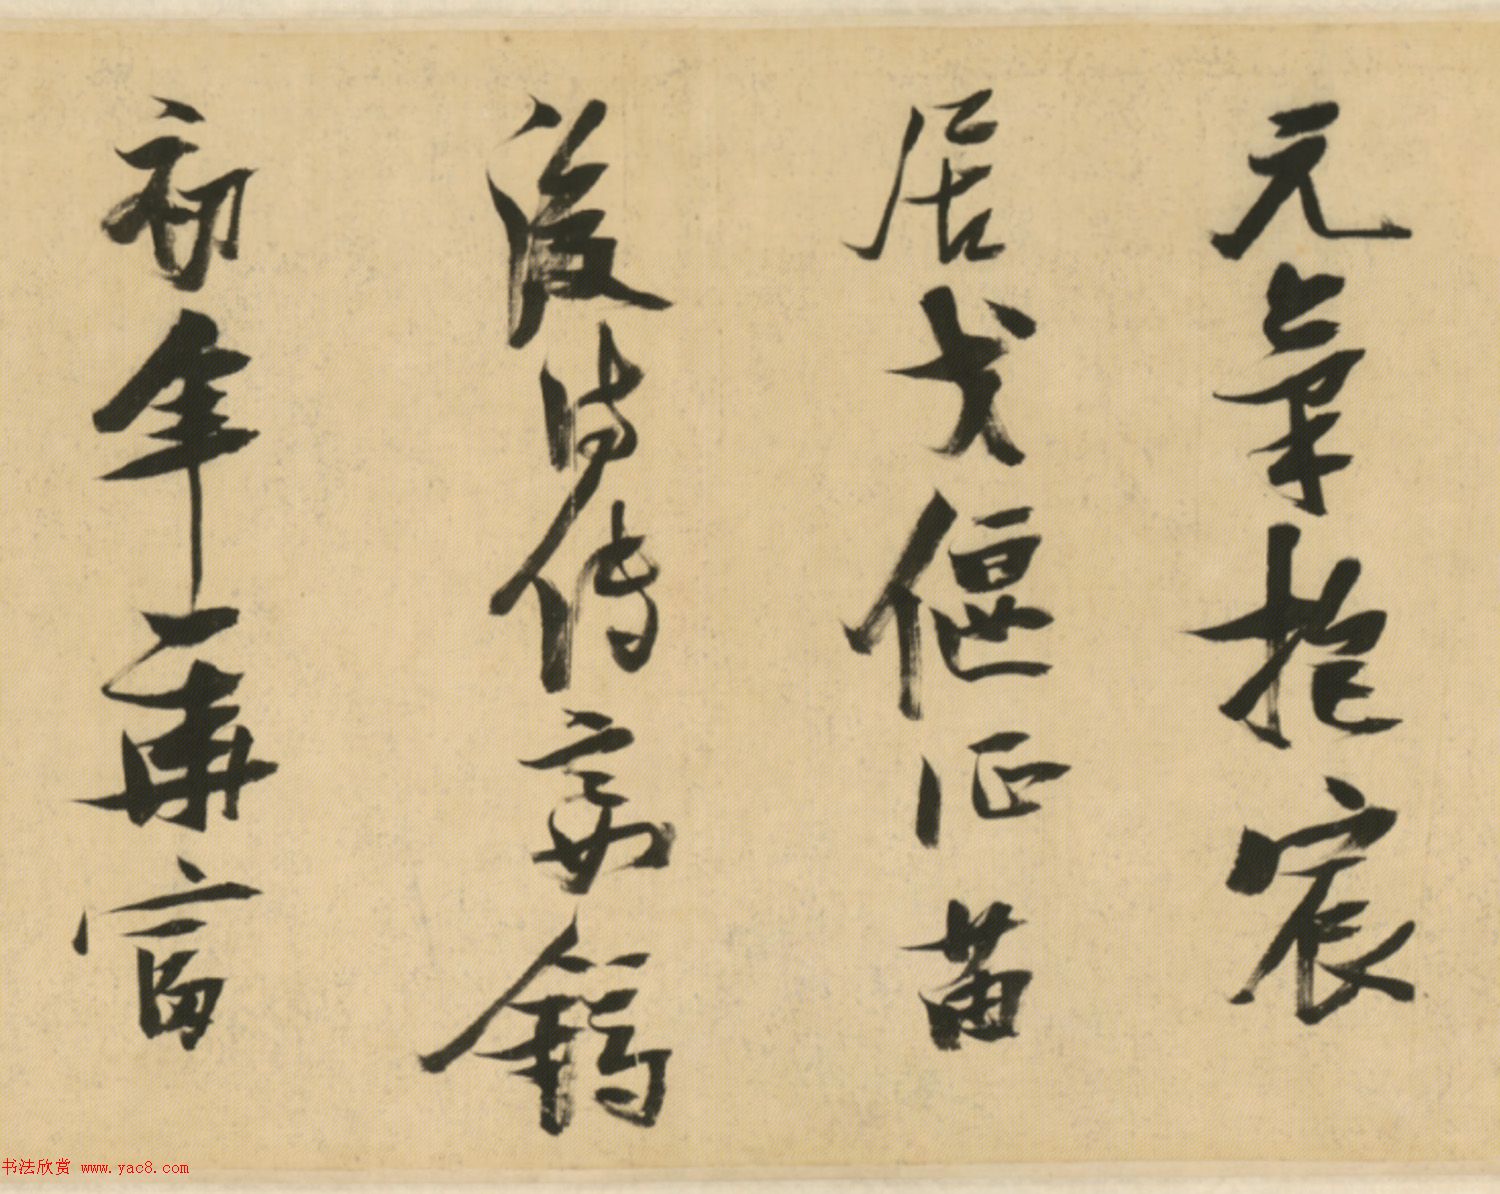 元氣抱宸
居戈偃征苗
後詩傳宴鎬
初年華富
书法欣赏 www.yac8.com